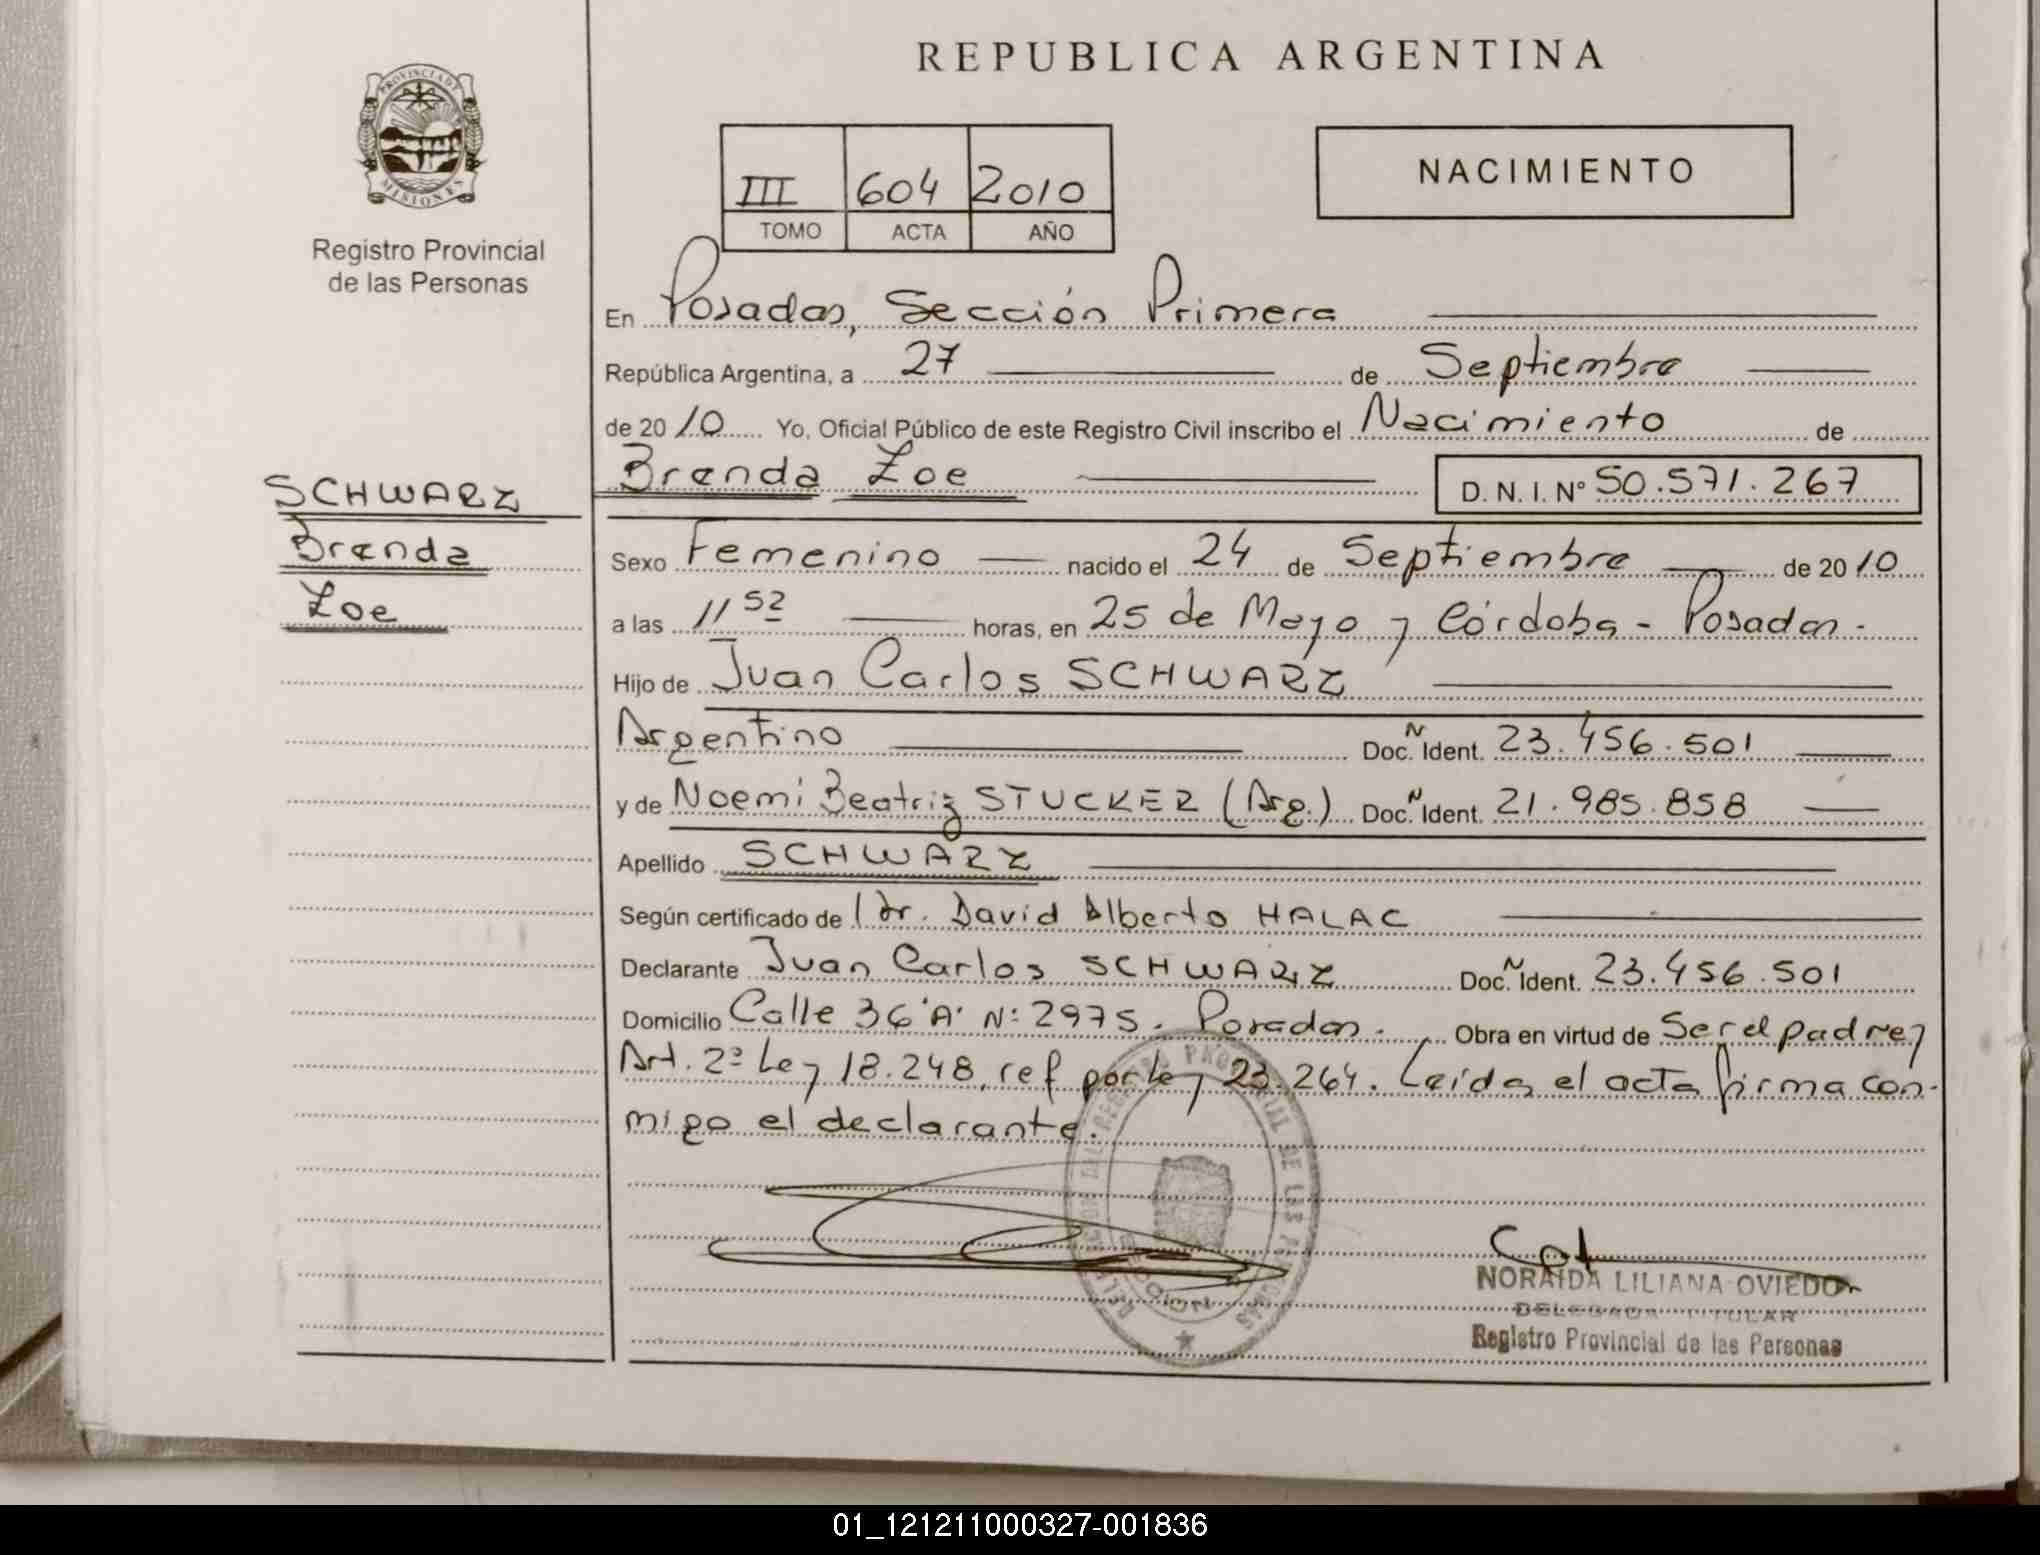 REPUBLICA ARGENTINA
PROVINCIA DE MISIONES
Registro Provincial
de las Personas
III 604 2010
TOMO ACTA AÑO
NACIMIENTO
En Posadas, Sección Primera
República Argentina, a 27 de Septiembre
de 2010 Yo, Oficial Público de este Registro Civil inscribo el Nacimiento de
Brenda Zoe D. N. I. N° 50.571.267
SCHWARZ
Brenda
Zoe
Sexo Femenino nacido el 24 de Septiembre de 2010
a las 11 52 horas, en 25 de Mayo y Córdoba - Posadas.
Hijo de Juan Carlos SCHWARZ
Argentino Doc. N Ident. 23.456.501
y de Noemi Beatriz STUCKER (Arg.) Doc. N Ident. 21.985.858
Apellido SCHWARZ
Según certificado de l Dr. David Alberto HALAC
Declarante Juan Carlos SCHWARZ Doc. N Ident. 23.456.501
Domicilio Calle 36 "A" N: 2975. Posadas. Obra en virtud de Ser el padre y
Art. 2º Ley 18.248, ref por ley 23.264. Leída el acta firma con-
migo el declarante.
NORAIDA LILIANA OVIEDO
DELEGADA TITULAR
Registro Provincial de las Personas
01_121211000327-001836